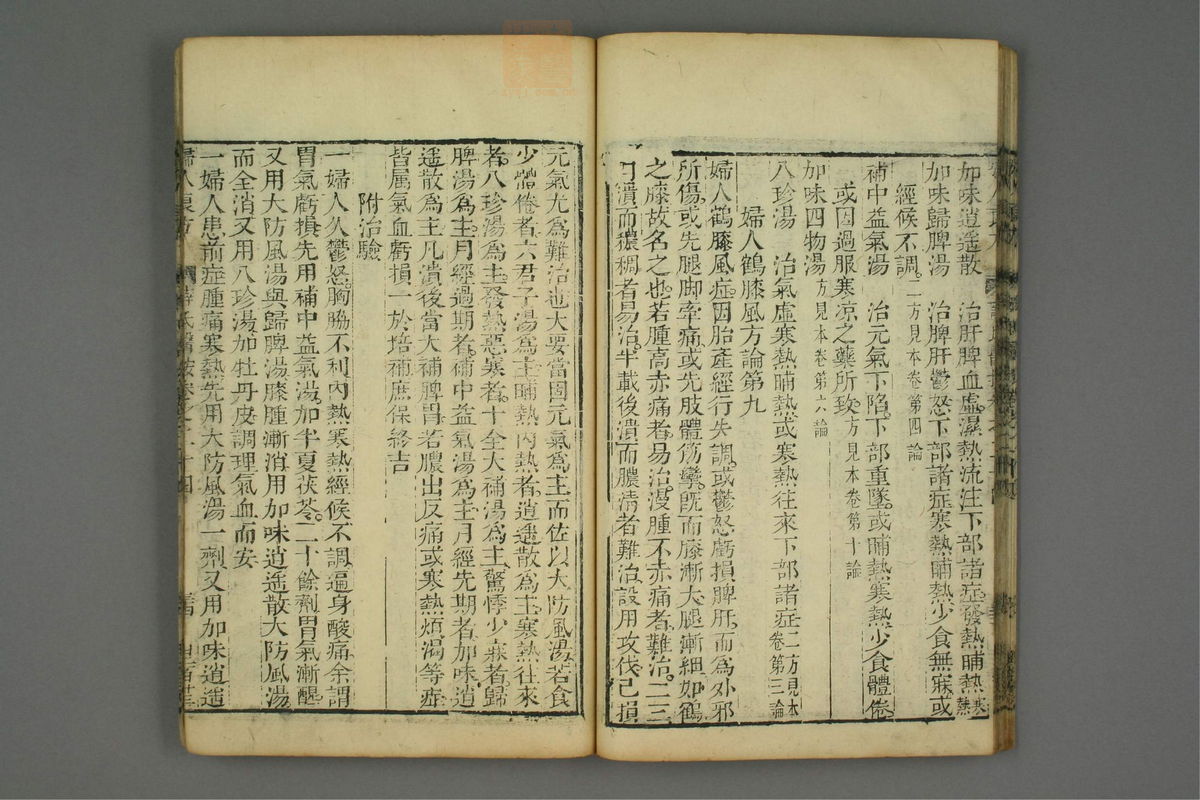 加味逍遥散　治肝脾血虛濕熱流注下部諸症發熱晡熱寒熱
加味歸脾湯　治脾肝鬱怒下部諸症寒熱晡熱少食無寐或
經候不調二方見本卷第四論
補中益氣湯　治元氣下陷下部重墜或晡熱寒熱少食體倦
或因過服寒凉之藥所致方見本卷第十論
加味四物湯方見本卷第六論
八珍湯　治氣虛寒熱晡熱或寒熱往來下部諸症二方見本卷第三論
婦人鶴膝風方論第九
婦人鶴膝風症因胎產經行失調或鬱怒虧損脾肝而為外邪
所傷或先腿脚牽痛或先肢體筋攣旣而膝漸大腿漸細如鶴
之膝故名之也若腫高赤痛者易治漫腫不赤痛者難治二三
月潰而穠稠者易治半載後潰而膿淸者難治設用攻伐已損
元氣尤為難治也大要當固元氣為主而佐以大防風湯若食
少體倦者六君子湯為主晡熱內熱者逍遥散為主寒熱往來
者八珍湯為主發熱惡寒者十全大補湯為主驚悸少寐者歸
脾湯為主月經過期者補中益氣湯為主月經先期者加味逍
遥散為主凡潰後當大補脾胃若膿出反痛或寒熱煩渴等症
皆属氣血虧損一於培補庶保終吉
附治驗
一婦人久鬱怒胸脇不利內熱寒熱經候不調遍身酸痛余謂
胃氣虧損先用補中益氣湯加半夏茯苓二十餘劑胃氣漸醒
又用大防風湯與歸脾湯膝腫漸消用加味逍遥散大防風湯
而全消又用八珍湯加牡丹皮調理氣血而安
一婦人患前症腫痛寒熱先用大防風湯一劑又用加味逍遥
婦人良方　薛氏醫按卷之二十四